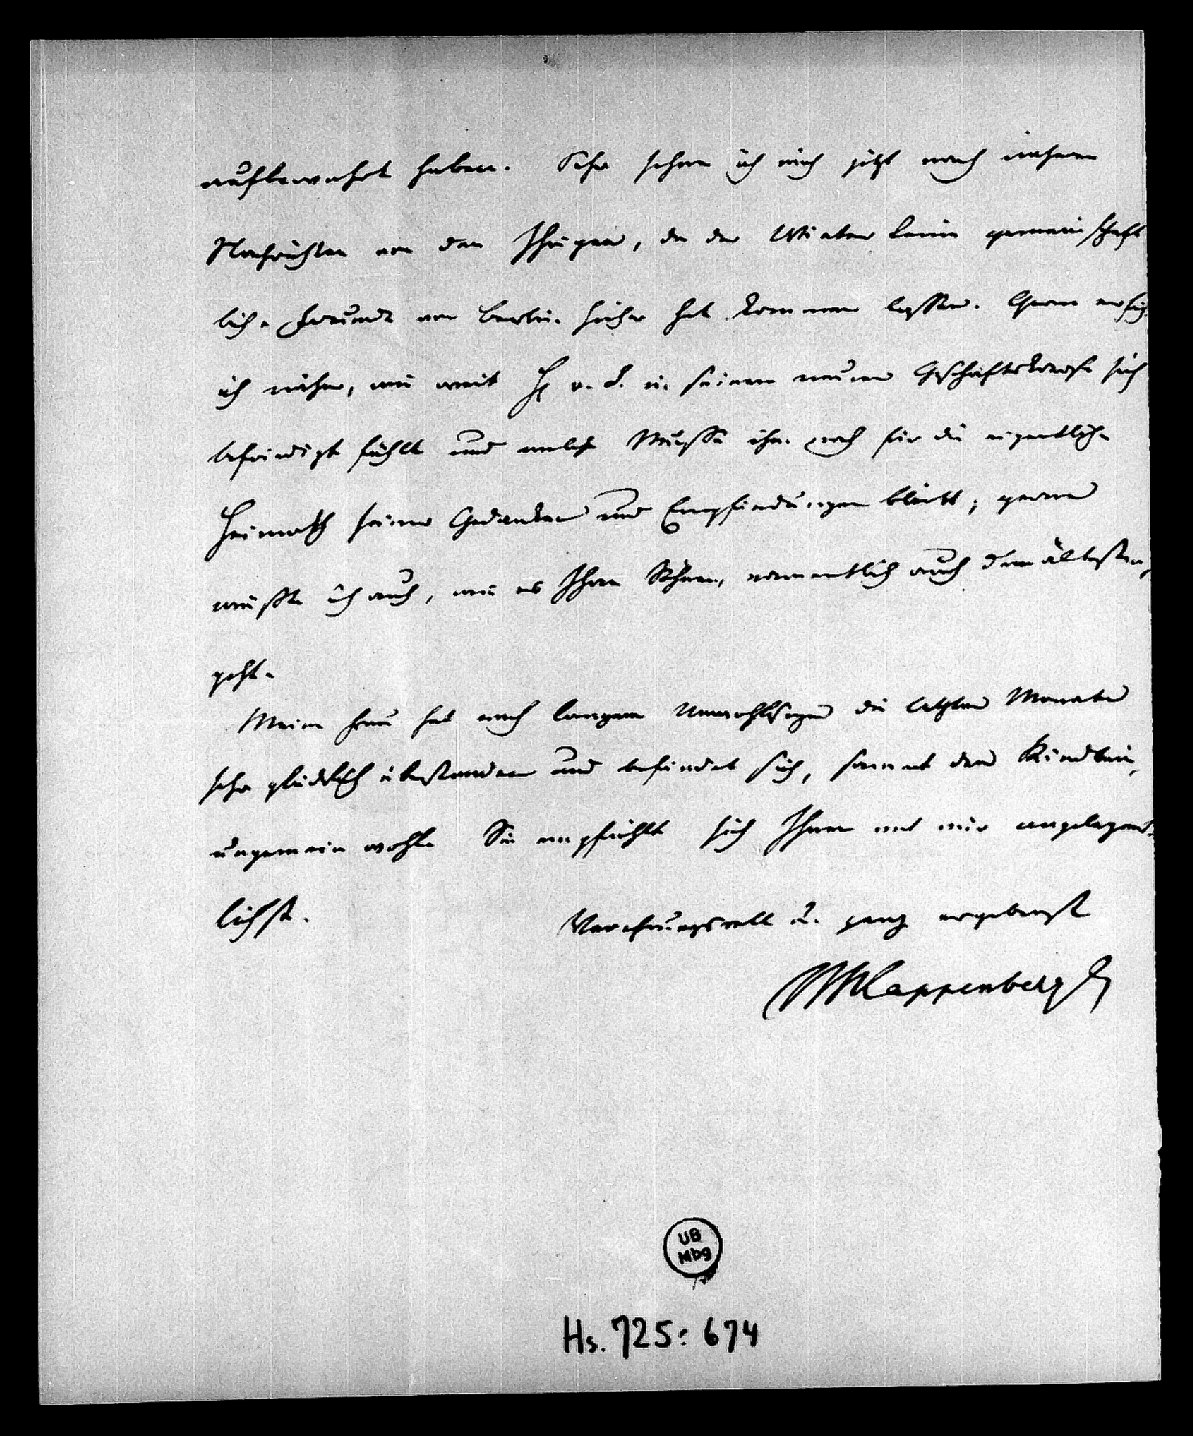 aufbewahrt haben. Sehr sehne ich mich jetzt nach nähern
Nachrichten von den Ihrigen, da der Winter keine gemeinschaft
liche Freunde von Berlin hieher hat kommen lassen. Gern
ich näher, wie weit H v. S. in seinem neuen Geschäftskreise sich
befriedigt fühlt und welche Muße ihm noch für die eigentliche
Heimath seiner Gedanken und Empfindungen bleibt; gerne
wüßte ich auch, wie es Ihren Söhnen, namentlich auch dem ältesten,
geht.
Meine Frau hat nach langem Unwohlseyn die letzten Monate
sehr glücklich überstanden und befindet sich, sammt dem Kindlein,
ungemein wohl. Sie empfiehlt sich Ihnen mit mir angelegent-
lichst.
Verehrungsvoll u. ganz ergebenst
Lappenberg
UB
Mbg
Hs. 725: 674